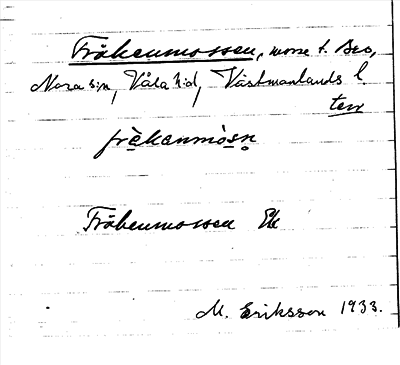 Fräkenmossen, mosse t. Bro,
Nora s:n, Våla h:d, Västmanlands l.
terr
fräkanmòsn
Fräkenmossen Ek
M. Eriksson 1933.